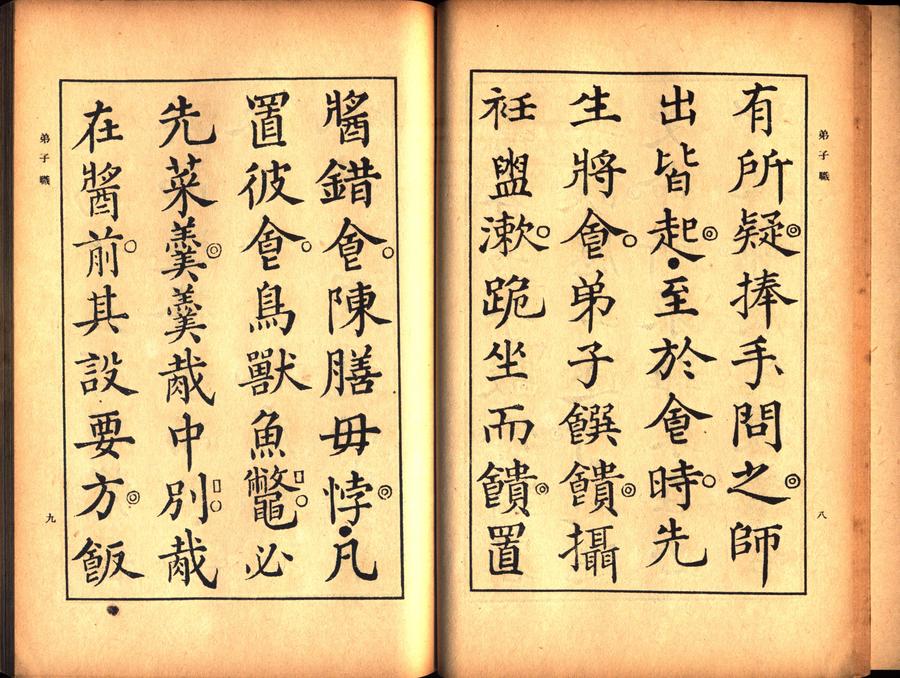 弟子職
八
有所疑捧手問之師
出皆起至於食時先
生將食弟子饌饋攝
衽盥漱跪坐而饋置
醬錯食陳膳毋悖凡
置彼食鳥獸魚鼈必
先菜羹羹胾中別胾
在醬前其設要方飯
弟子職
九